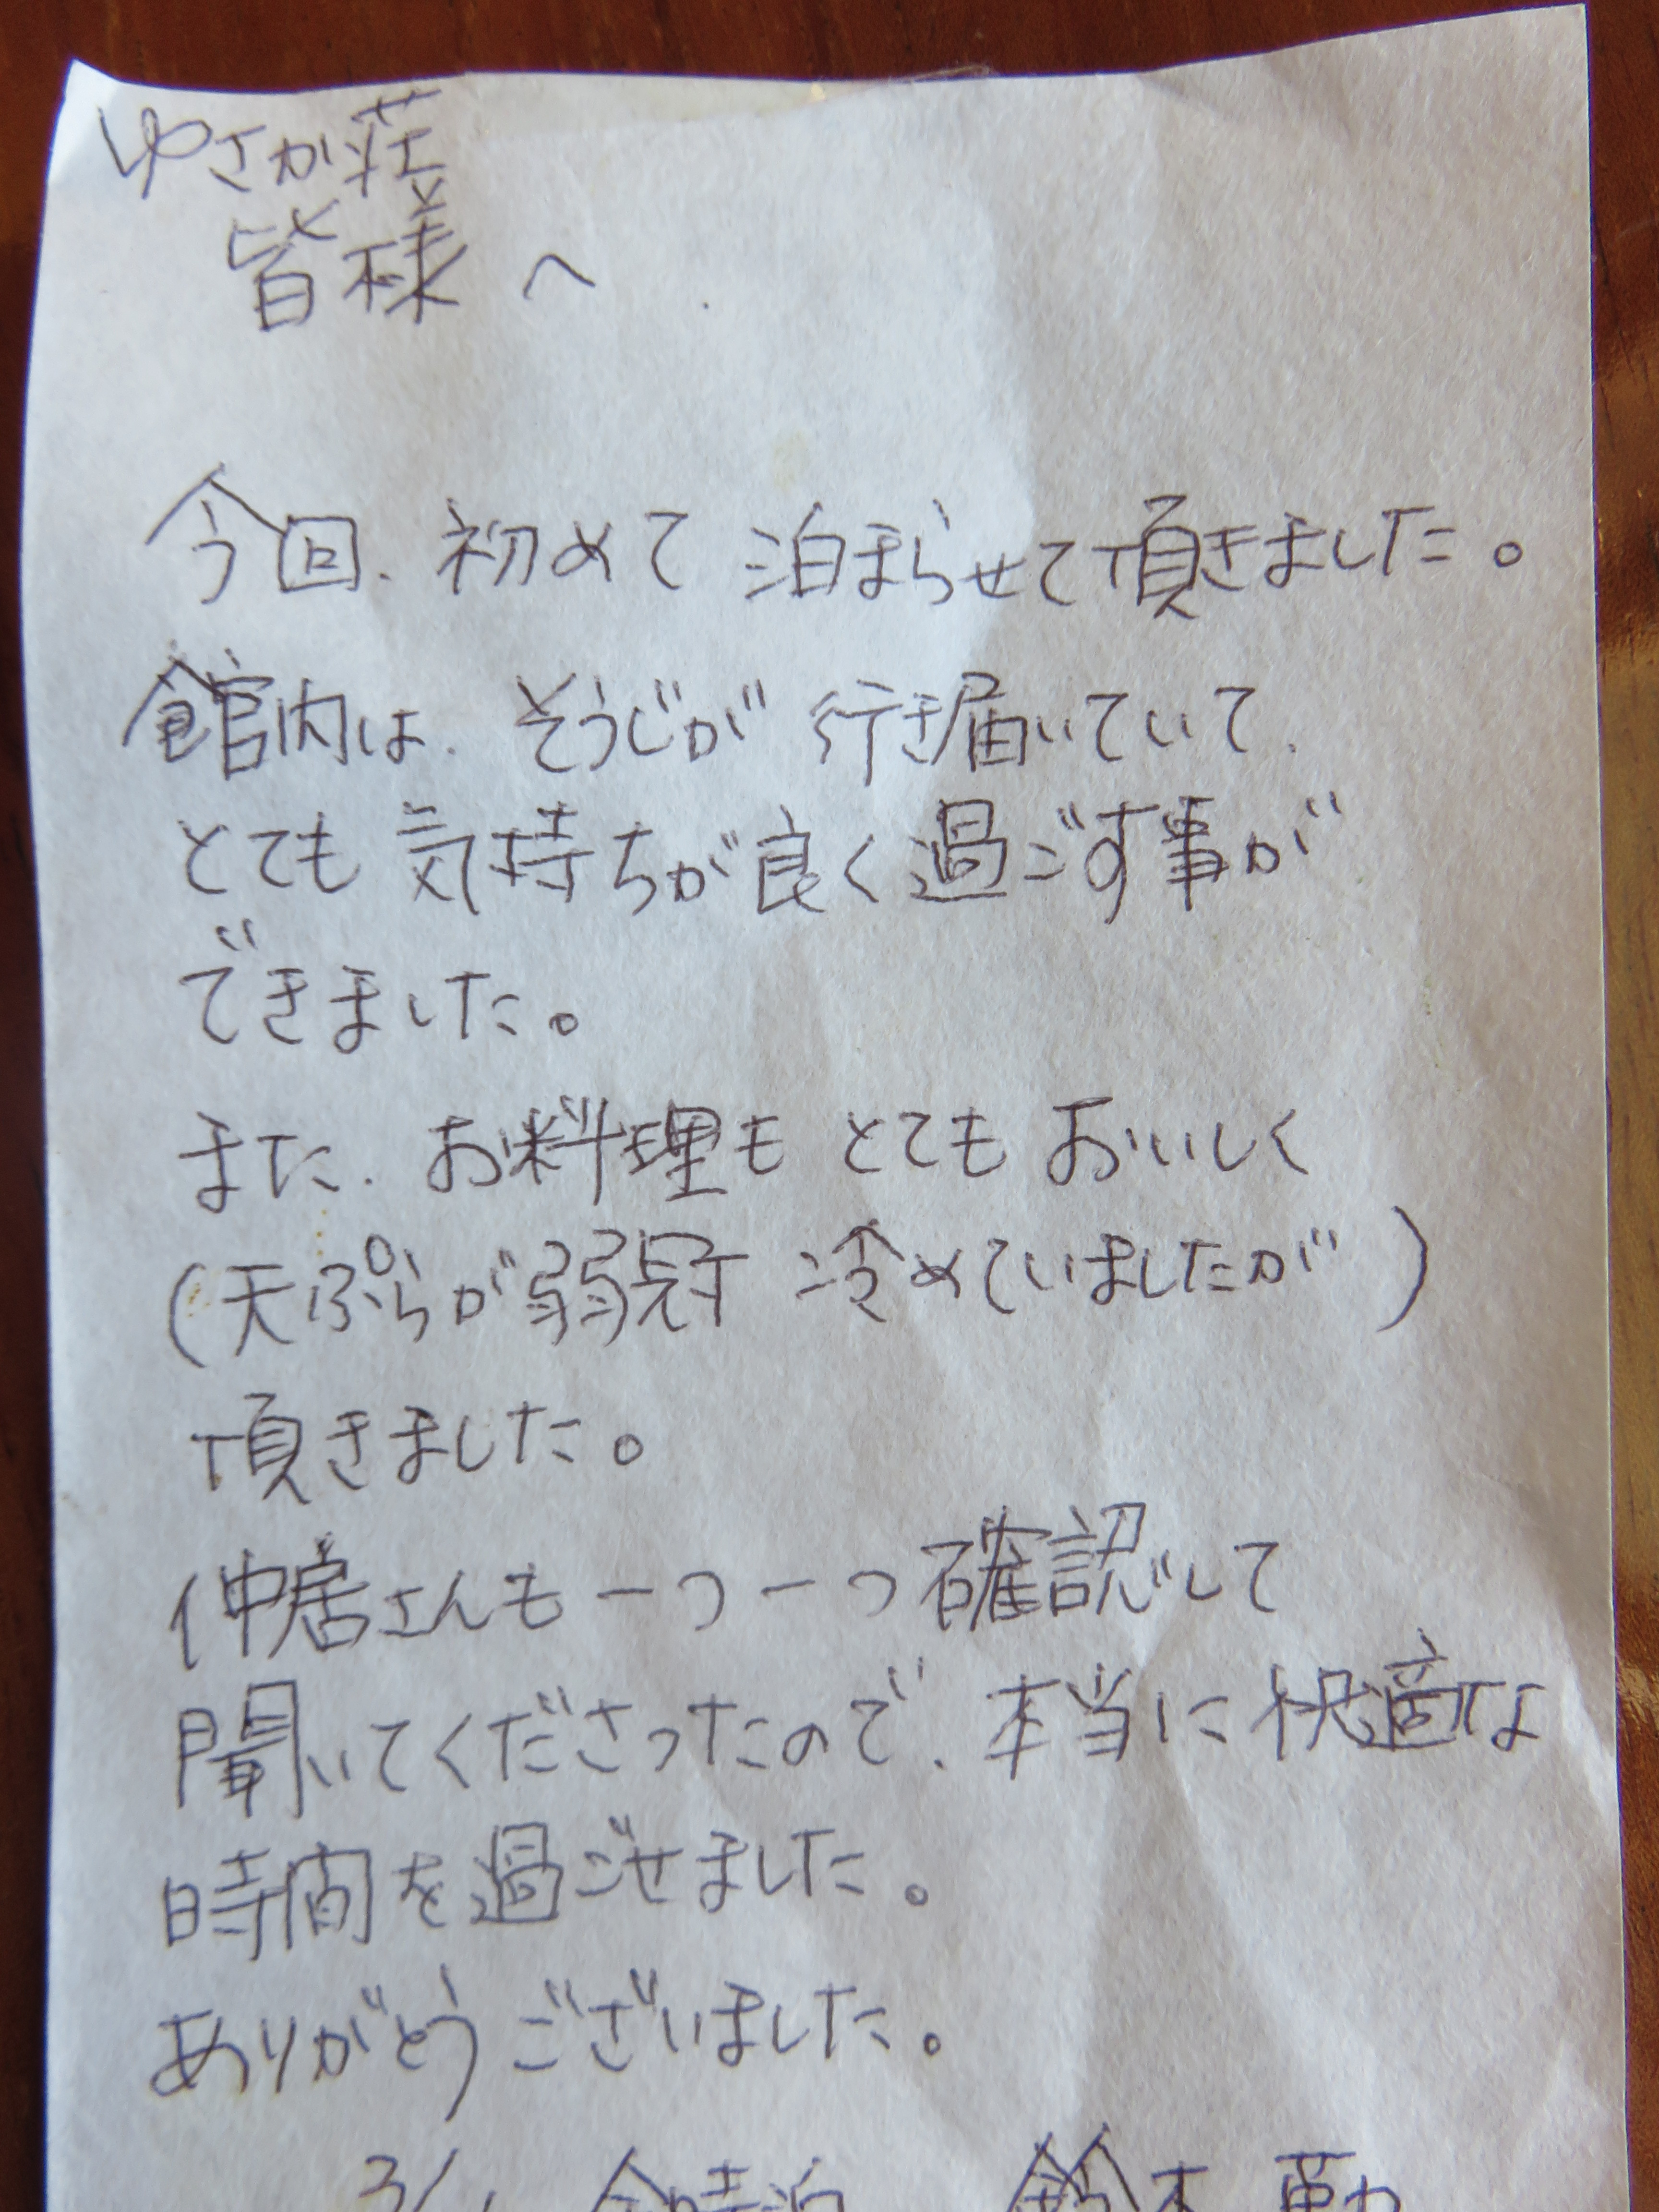 ゆさか荘
皆様へ
今回、初めて泊まらせて頂きました。
館内は、そうじが行き届いていて、
とても気持ちが良く過ごす事が
できました。
また、お料理もとてもおいしく
(天ぷらが弱冠冷めていましたが)
頂きました。
仲居さんも一つ一つ確認して
聞いてくださったので、本当に快適な
時間を過ごせました。
ありがとうございました。
鈴木